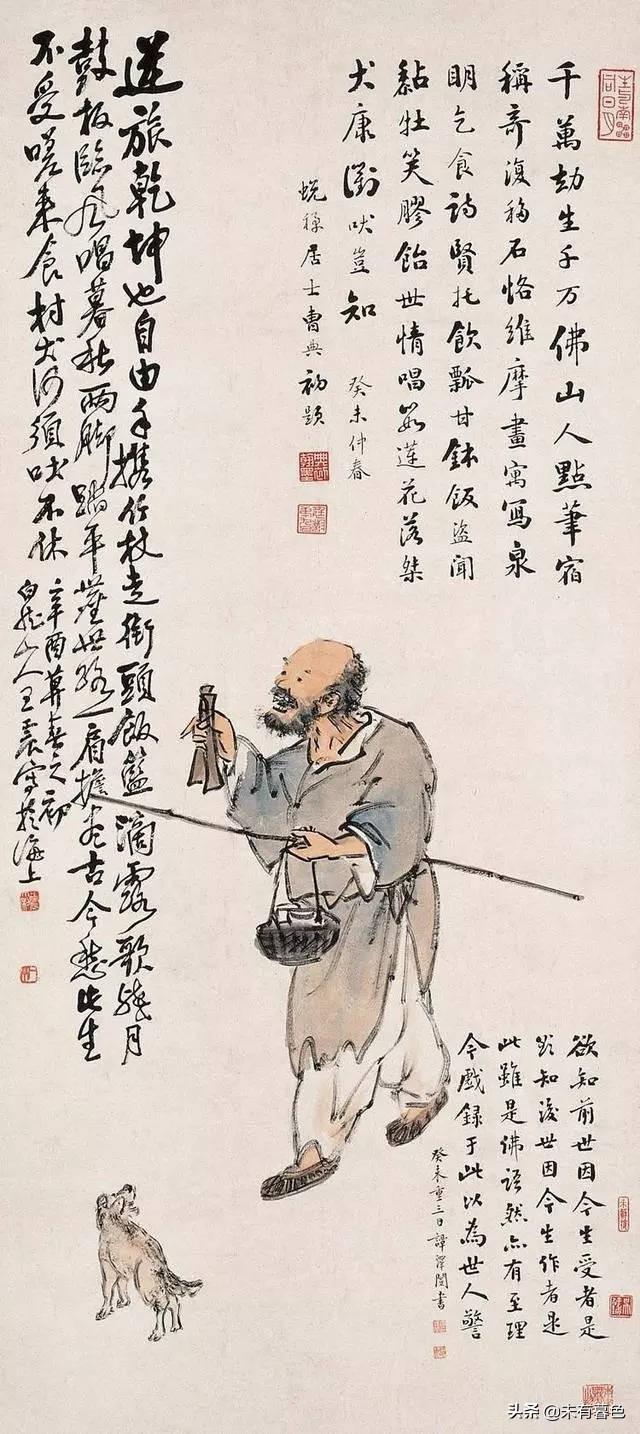 千萬劫生千万佛山人點筆宿
稱奇復移石恪維摩畫寓寫泉
明乞食詩賢托飲瓢甘鉢飯盜聞
黏牡笑膠飴世情唱蓮花落桀
犬康衢吠豈知 癸未仲春
居士曹典初題
逆旅乾坤也自由手携竹杖走街頭飯籃滴露歌殘月
鼓板臨風唱暮秋兩脚踏平塵世路一肩擔盡古今愁此生
不受嗟來食村犬何須吠不休
辛酉莫春之初
白龍山人王震寫於海上
欲知前世因今生受者是
欲知後世因今生作者是
此雖是佛語然亦有至理
今戲録于此以為世人警
癸未重三日譚澤闓書
头条 @未有暮色